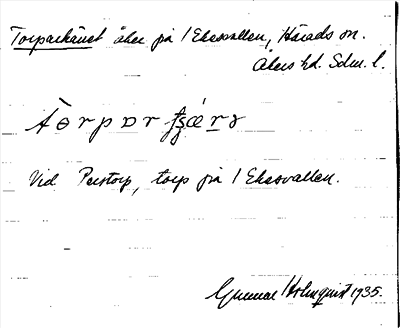 Torparkäret åker på / Ekesvallen, Härads sn.
Åkers hd. Sdm. l.
Vid Perstorp, torp på / Ekesvallen.
Gunnar Holmquist 1935.